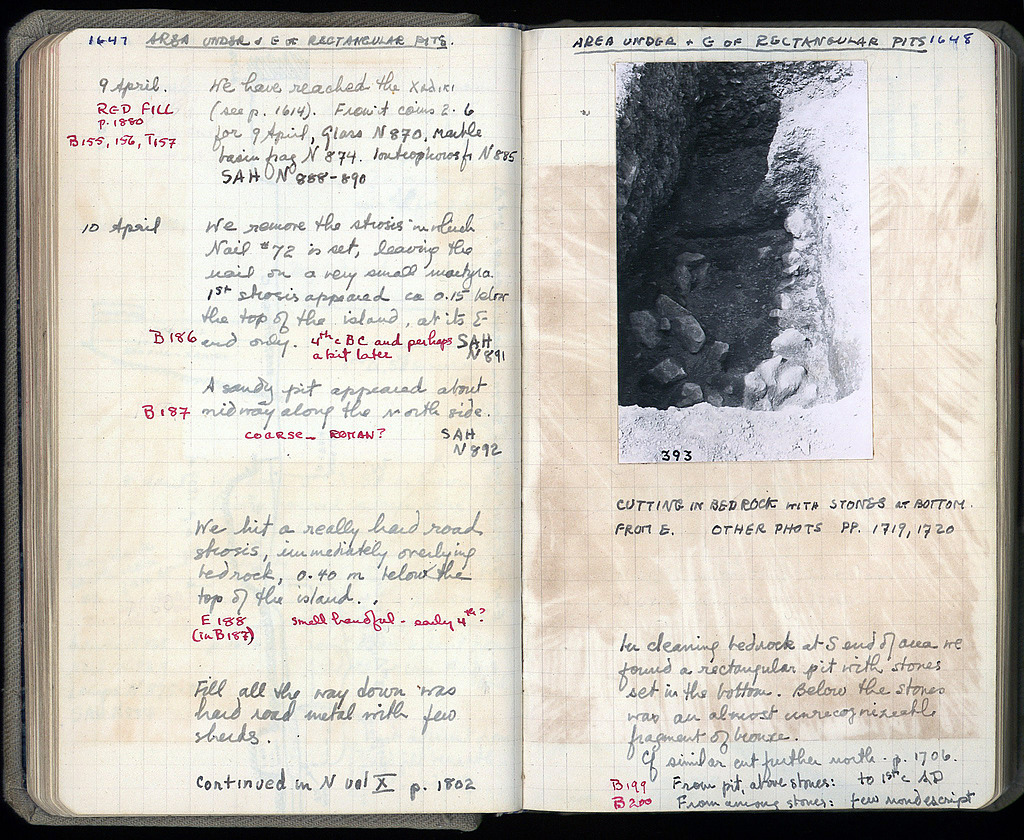 1647 AREA UNDER & E OF RECTANGULAR PITS.
9 April. We have reached the
RED FILL (see p. 1614). Front coins 2. 6
p. 1880
for 9 April, Glass N 870, marble
B155, 156, T157
basin frag N 874. loutrophoros fr N 885
SAH N° 888-890
10 April We remove the strosis in which
Nail #72 is set, leaving the
nail on a very small martyra.
1st strosis appeared ca 0.15 below
the top of the island, at its E
B186 end only. 4th c BC and perhaps SAH
a bit later N 891
A sandy pit appeared about
B187 midway along the north side.
COARSE - ROMAN? SAH
N 892
We hit a really hard road
strosis, immediately overlying
bedrock, 0.40 m below the
top of the island.
E 188 small handful - early 4th?
(in B187)
Fill all the way down was
hard road metal with few
sherds.
Continued in N vol X p. 1802
AREA UNDER + E OF RECTANGULAR PITS 1648
393
CUTTING IN BEDROCK WITH STONES AT BOTTOM.
FROM E. OTHER PHOTS PP. 1719, 1720
In cleaning bedrock at S end of area we
found a rectangular pit with stones
set in the bottom. Below the stones
was an almost unrecognizeable
fragment of bronze.
Cf similar cut further north - p. 1706.
B199 From pit, above stones: to 1st c AD
B200 From among stones: few nondescript